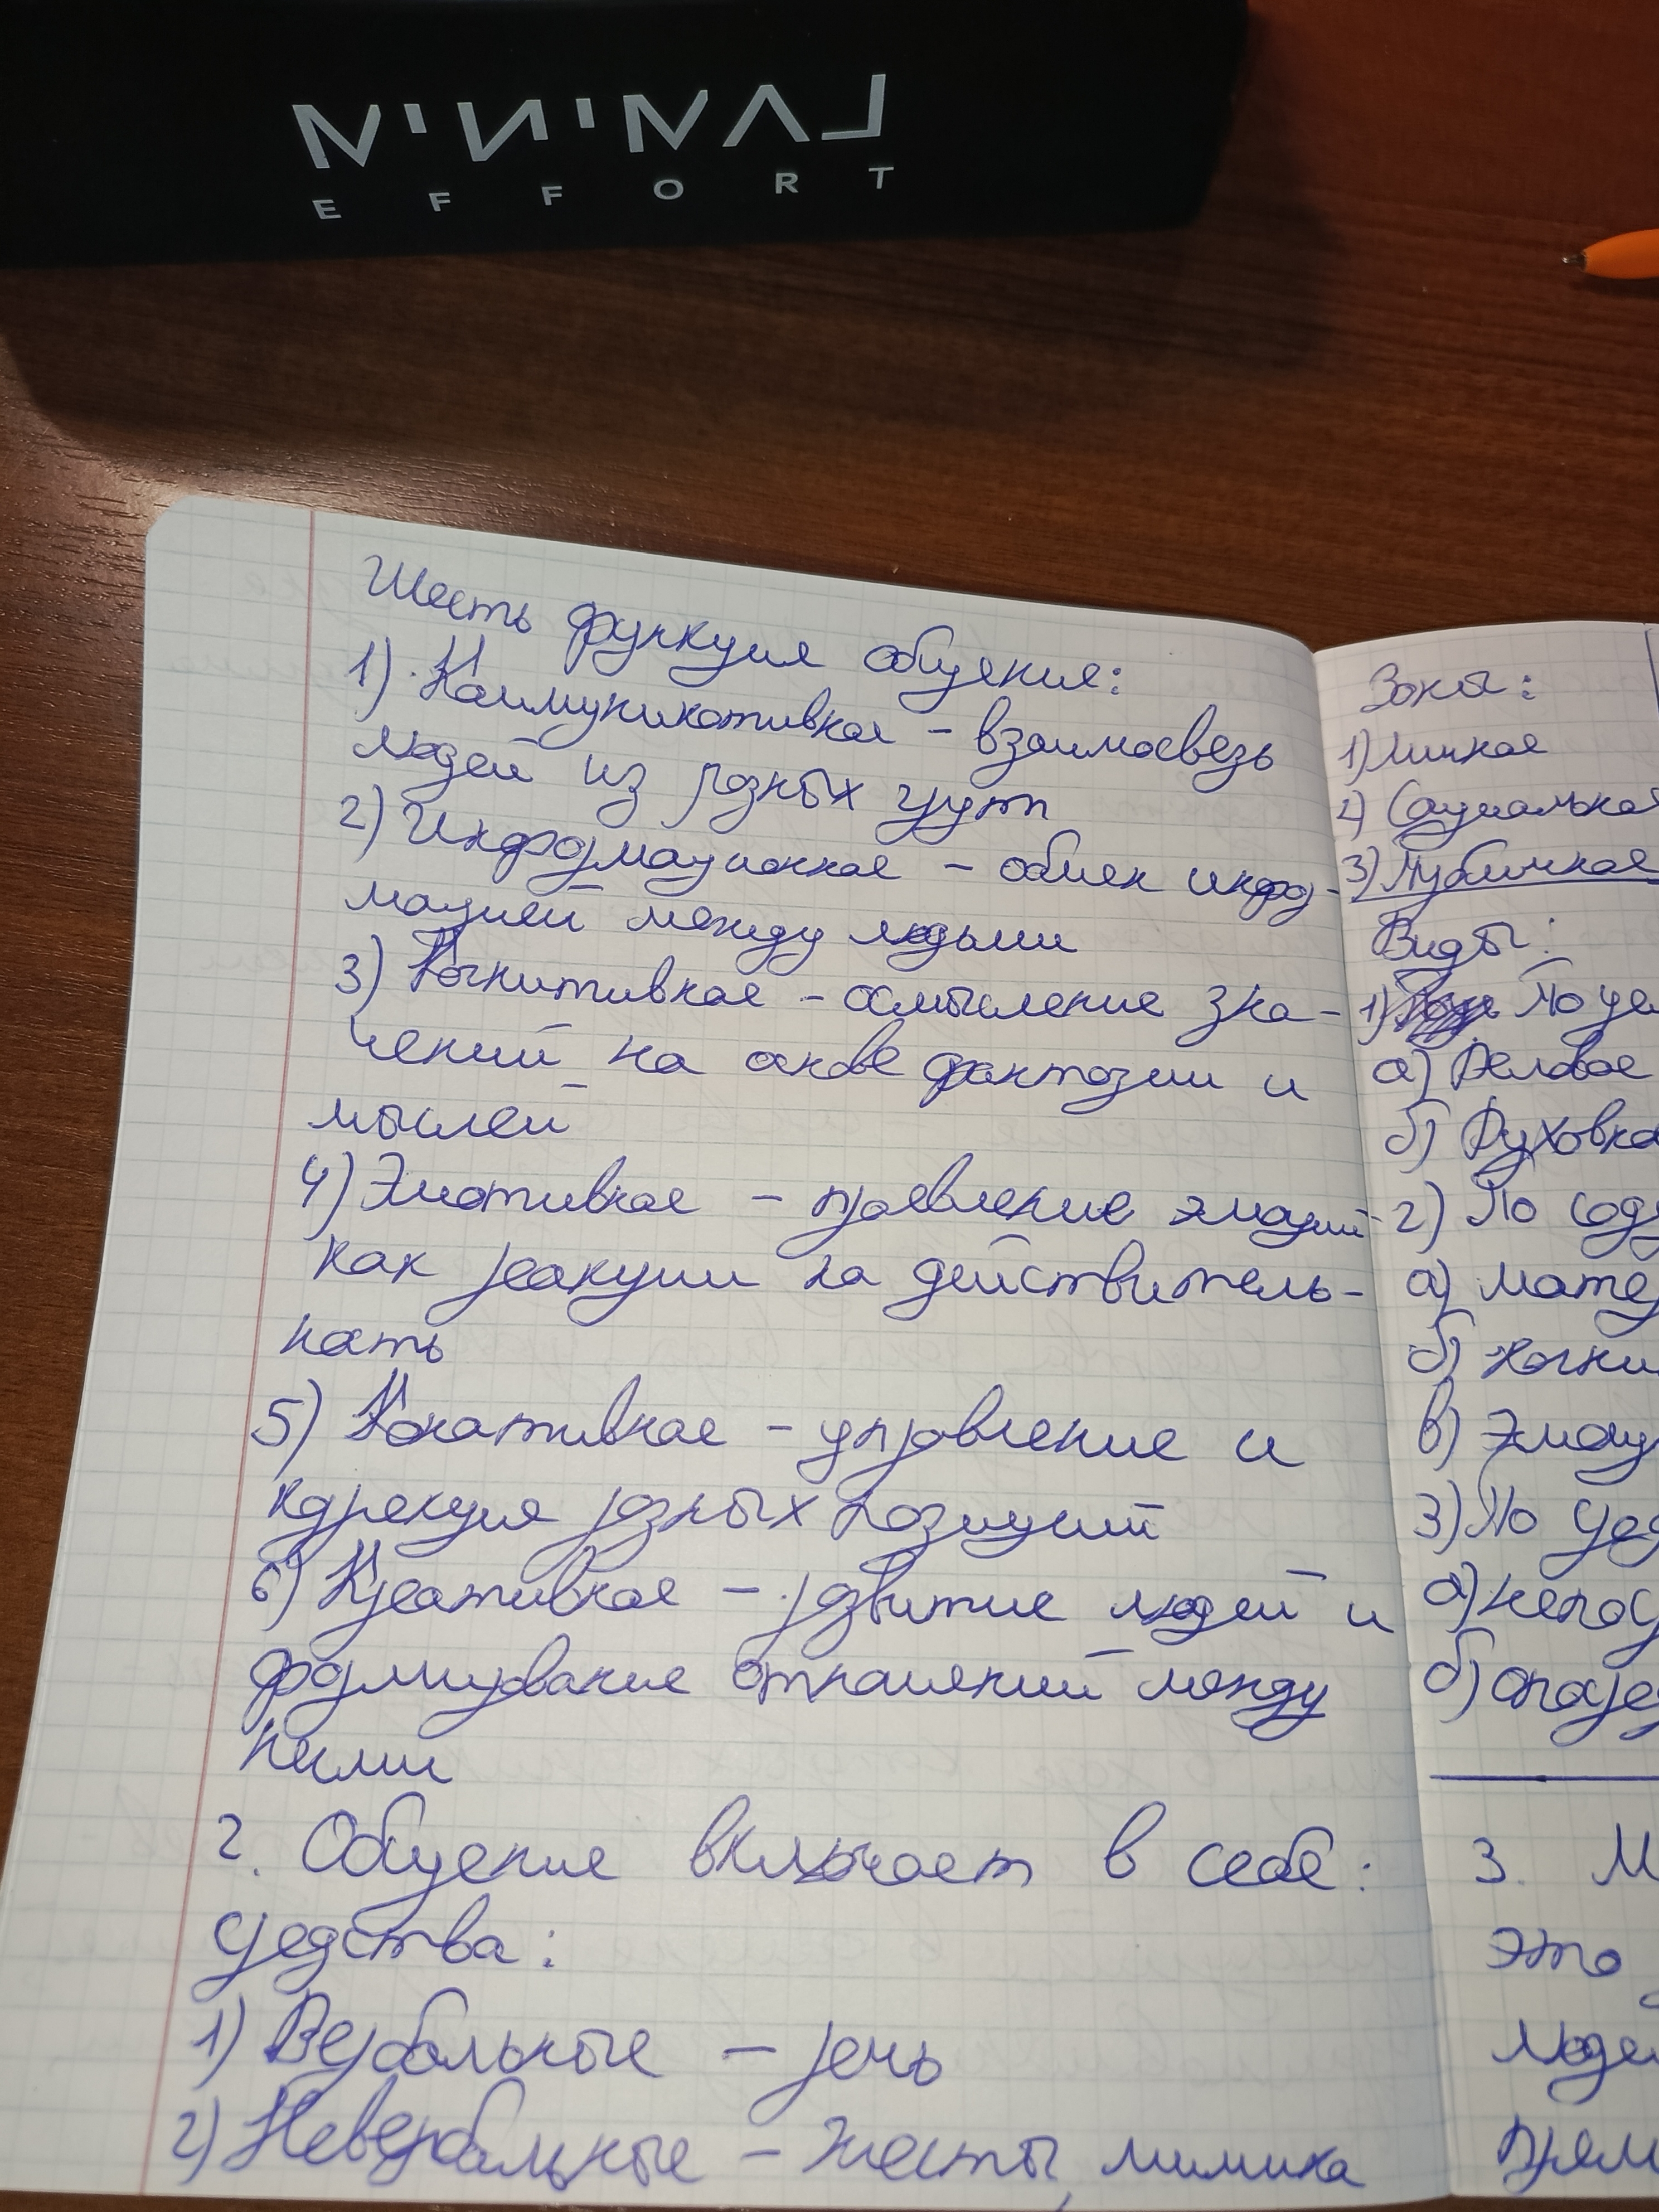 MINIMAL
EFFORT
Шесть функция общения:
1) Коммуникативная - взаимосвязь
людей из разных групп
2) Информационная - обмен инфор-
мацией между людьми
3) Когнитивная - осмысление зна-
чений на основе фантазии и
мыслей
4) Эмотивная - проявление эмоций
как реакции на действитель-
ность
5) Конативная - управление и
коррекция разных позиций
6) Креативная - развитие людей и
формирование отношений между
ними
2. Общение включает в себя:
средства:
1) Вербальные - речь
2) Невербальные - жесты, мимика
Зоны:
1) Личная
2) Социальная
3) Публичная
Виды:
1) По цел
а) Деловое
б) Духовно
2) По сод
а) мате
б) когни
в) эмоц
3) По сре
а) непос
б) опосре
3. М
это
люде
прям